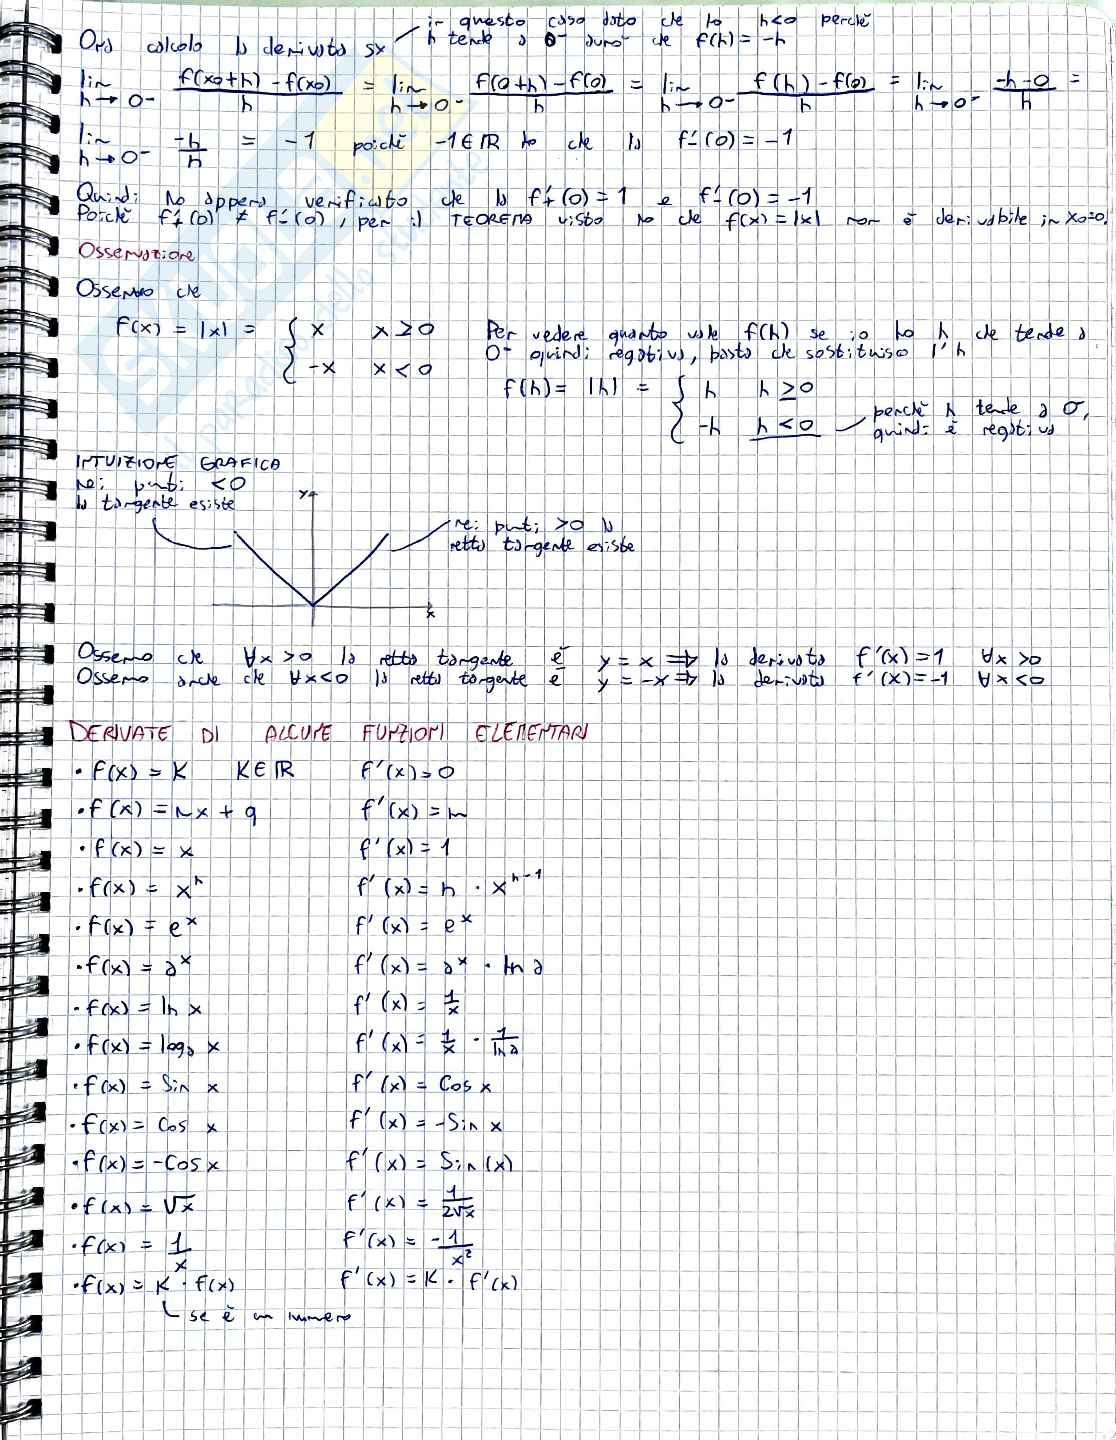 in questo caso dato che ho h<0 perché
h tende a 0⁻ avrò che f(h) = -h
Ora calcolo la derivata sx
lim h→0⁻ f(x0+h) - f(x0) / h = lim h→0⁻ f(0+h) - f(0) / h = lim h→0⁻ f(h) - f(0) / h = lim h→0⁻ -h-0 / h =
lim h→0⁻ -h / h = -1 poiché -1∈ℝ ho che la f'₋(0) = -1
Quindi ho appena verificato che la f'₊(0) = 1 e f'₋(0) = -1
Poiché f'₊(0) ≠ f'₋(0), per il TEOREMA visto ho che f(x) = |x| non è derivabile in x0=0.
Osservazione
Osservo che
f(x) = |x| = { x x ≥ 0
-x x < 0
Per vedere quanto vale f(h) se io ho h che tende a
0⁻ quindi negativo, basta che sostituisco l'h
f(h) = |h| = { h h ≥ 0
-h h < 0
perché h tende a 0⁻,
quindi è negativo
INTUIZIONE GRAFICA
nei punti <0
la tangente esiste
y
nei punti >0 la
retta tangente esiste
x
Osservo che ∀x > 0 la retta tangente è y = x ⇒ la derivata f'(x) = 1 ∀x > 0
Osservo anche che ∀x < 0 la retta tangente è y = -x ⇒ la derivata f'(x) = -1 ∀x < 0
DERIVATE DI ALCUNE FUNZIONI ELEMENTARI
· f(x) = K K∈ℝ f'(x) = 0
· f(x) = mx + q f'(x) = m
· f(x) = x f'(x) = 1
· f(x) = xⁿ f'(x) = n · xⁿ⁻¹
· f(x) = eˣ f'(x) = eˣ
· f(x) = aˣ f'(x) = aˣ · ln a
· f(x) = ln x f'(x) = 1/x
· f(x) = logₐ x f'(x) = 1/x · 1/ln a
· f(x) = Sin x f'(x) = Cos x
· f(x) = Cos x f'(x) = -Sin x
· f(x) = -Cos x f'(x) = Sin(x)
· f(x) = √x f'(x) = 1/2√x
· f(x) = 1/x f'(x) = -1/x²
· f(x) = K · f(x) f'(x) = K · f'(x)
se è un numero